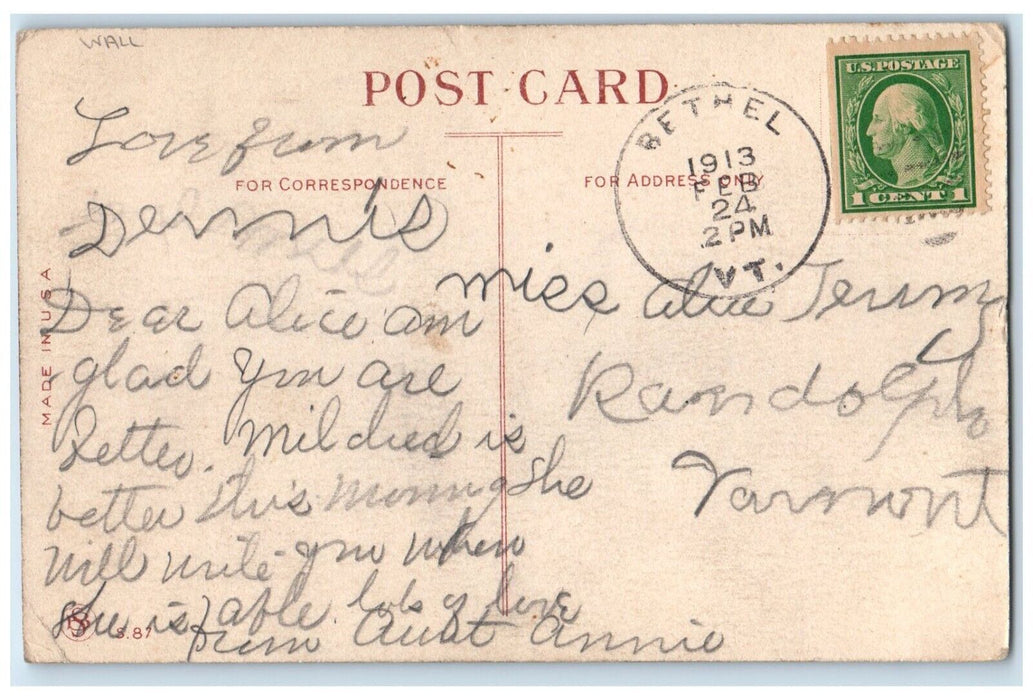 WALL
POST CARD
Love from
FOR CORRESPONDENCE
Dennis
Dear Alice am
glad you are
better. Mildred is
better this morning She
will write you when
She is able lots of love
from Aunt Annie
MADE IN U.S.A
S.87
FOR ADDRESS ONLY
BETHEL
1913
FEB
24
2 PM
VT.
U.S. POSTAGE
1 CENT 1
miss Alice
Randolph
Varmont